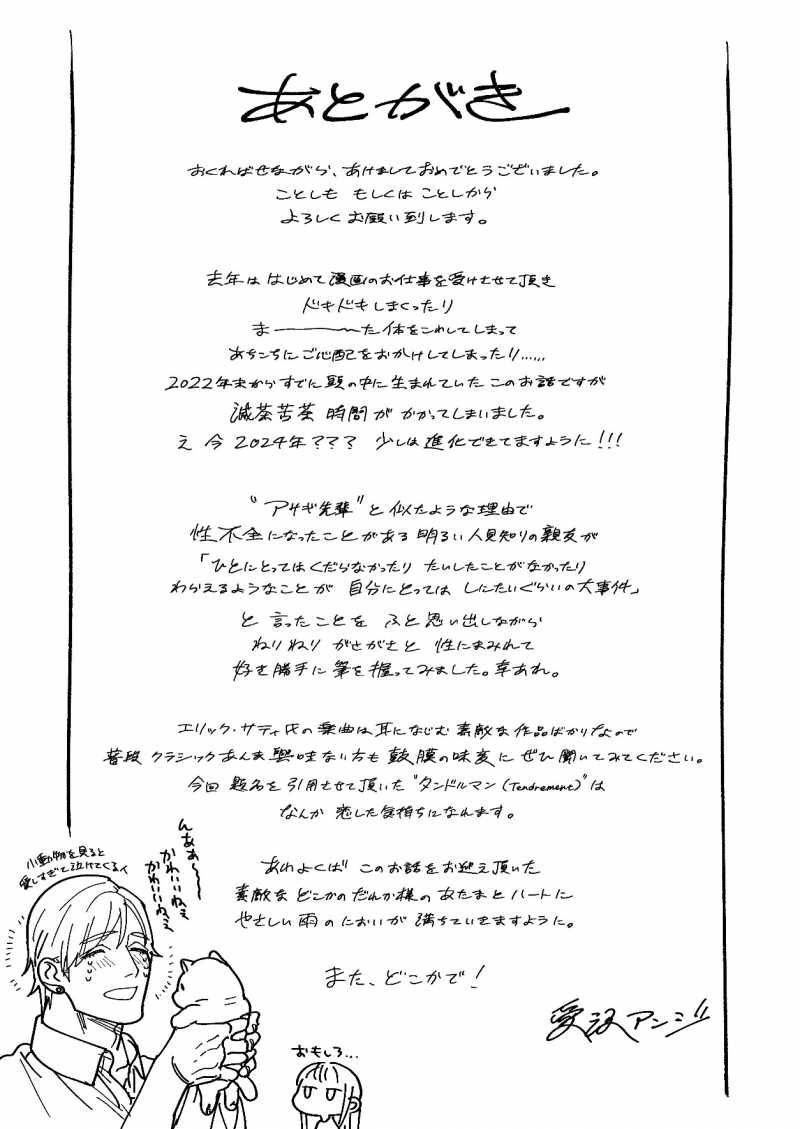 あとがき
おくればせながら、あけましておめでとうございました。
ことしも もしくは ことしから
よろしく お願い到します。
去年は はじめて 漫画のお仕事を受けさせて頂き
ドキドキしまくったり
ま――――〜た 体をこわしてしまって
あちこちにご心配をおかけしてしまったり……
2022年末からすでに頭の中に生まれていたこのお話ですが
滅茶苦茶 時間が かかってしまいました。
え 今 2024年??? 少しは進化できてますように!!!
"アサギ先輩" と 似たような理由で
性不全になったことがある 明るい人見知りの親友が
「ひとにとってはくだらなかったり たいしたことがなかったり
わらえるようなことが 自分にとっては しにたいぐらいの大事件」
と 言ったことを ふと思い出しながら
ねりねり がさがさと 性にまみれて
好き勝手に筆を握ってみました。幸あれ。
エリック・サティ氏の楽曲は耳になじむ素敵な作品ばかりなので
普段クラシックあんま興味ない方も 鼓膜の味変に ぜひ聞いてみてください。
今回 題名を引用させて頂いた "タンドルマン (Tendrement)" は
なんか 恋した気持ちになれます。
あわよくば このお話をお迎え頂いた
素敵な どこかのだれか様の あたまとハートに
やさしい雨のにおいが 満ちていきますように。
また、どこかで!
愛沢アンジ
小動物を見ると
愛しすぎて泣けてくるイ
んあぁ〜〜
かわいいねぇ
かわいいねぇ
おもしろ…